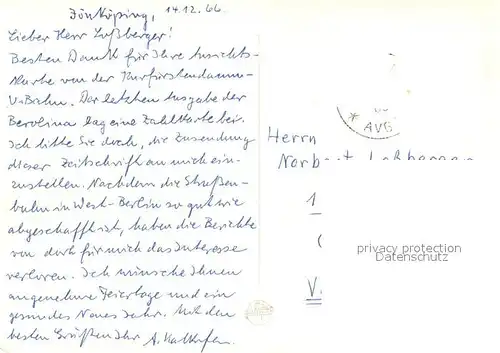 Jönköping, 14.12.66
Lieber Herr Loßberger!
Besten Dank für Ihre Ansichts-
karte von der Kurfürstendamm-
U-Bahn. Der letzten Ausgabe der
Berolina lag eine Zahlkarte bei.
Ich bitte Sie doch, die Zusendung
dieser Zeitschrift an mich ein-
zustellen. Nachdem die Straßen-
bahn in West-Berlin so gut wie
abgeschafft ist, haben die Berichte
von dort für mich das Interesse
verloren. Ich wünsche Ihnen
angenehme Feiertage und ein
gesundes Neues Jahr. Mit den
besten Grüßen Ihr A.
* AVG
Herrn
Norbert Loßberger
1
V
privacy protection
Datenschutz